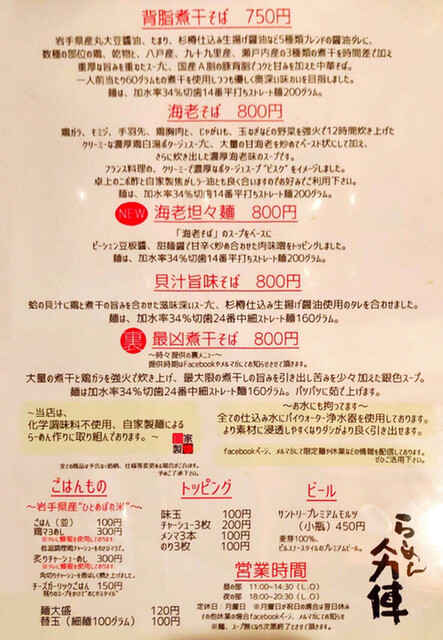 背脂煮干そば 750円
岩手県産丸大豆醤油、たまり、杉樽仕込み生揚げ醤油など5種類ブレンドの醤油ダレに、
数種の部位の鶏、乾物と、八戸産、九十九里産、瀬戸内産の3種類の煮干を時間差で加え
重厚な旨みを重ねたスープに、国産A脂の豚背脂でコクと甘みを加えた中華そば。
一人前当たり60グラムもの煮干を使用しつつも優しく奥深い味いを目指しました。
麺は、加水率34%切歯14番平打ちストレート麺200グラム。
海老そば 800円
鶏ガラ、モミジ、手羽先、鶏胸肉と、じゃがいも、玉ねぎなどの野菜を強火で12時間炊き上げた
クリーミーな濃厚鶏白湯ポタージュスープに、大量の甘海老を炒めてペースト状にして加え、
さらに炊き出した濃厚海老味のスープです。
フランス料理の、クリーミーで濃厚なポタージュスープ"ビスク"をイメージしました。
卓上のニボ酢と自家製焦がしラー油とも良く合いますのでお好みでご利用下さい。
麺は、加水率34%切歯14番平打ちストレート麺200グラム。
NEW 海老坦々麺 800円
「海老そば」のスープをベースに
ピーシェン豆板醤、甜麺醤で甘辛く炒め合わせた肉味噌をトッピングしました。
麺は、加水率34%切歯14番平打ちストレート麺200グラム。
貝汁旨味そば 800円
蛤の貝汁に鶏と煮干の旨みを合わせた滋味深いスープに、杉樽仕込み生揚げ醤油使用のタレを合わせました。
麺は、加水率34%切歯24番中細ストレート麺160グラム。
裏 最凶煮干そば 800円
～時々提供の裏メニュー～
提供時期はFacebookやメルマガにてお知らせさせて頂きます。
大量の煮干と鶏ガラを強火で炊き上げ、最大限の煮干しの旨みを引き出し苦みを少々加えた銀色スープ。
麺は加水率34%切歯24番中細ストレート麺160グラム。パツパツに茹で上げます。
～当店は、
化学調味料不使用、自家製麺による
らーめん作りに取り組んでおります。～
自家製
～お水にも拘ってます～
全ての仕込み水にバイウォーター浄水器を使用しております。
より素材に浸透しやすくなりダシがより良く引き出せます。
全ての商品は予告なく価格、仕様等変更ある場合がございます。
予めご了承下さい。
facebookページ、メルマガにて限定麺や休業などの情報を配信しております。
ぜひご活用下さい。
ごはんもの
～岩手県産"ひとめぼれ米"～
ごはん（並） 100円
鶏マヨめし 300円
※テレビ蜂蜜を使用しております。
低温調理鶏チャーシューをのせました。
炙りチャーシューめし 300円
※テレビ蜂蜜を使用しております。
角切りチャーシューを香ばしく焼き上げました。
チーズガーリックごはん 150円
残りのスープをかけて"めにゃスタイル"
麺大盛 120円
替玉（細麺100グラム） 100円
トッピング
味玉 100円
チャーシュー3枚 200円
メンマ3本 100円
のり3枚 100円
ビール
サントリープレミアムモルツ
（小瓶）450円
麦芽100%、
ピルスナースタイルのプレミアムビール。
営業時間
昼の部 11:00～14:30（L.O）
夜の部 18:00～20:30（L.O）
定休日：月曜日 ※月曜日が祝日の場合は翌日休み
その他休業の場合facebookページ、メルマガにてお知らせ致します
※麺、スープ無くなり次第終了とさせて頂きます。
らーめん
人力俥